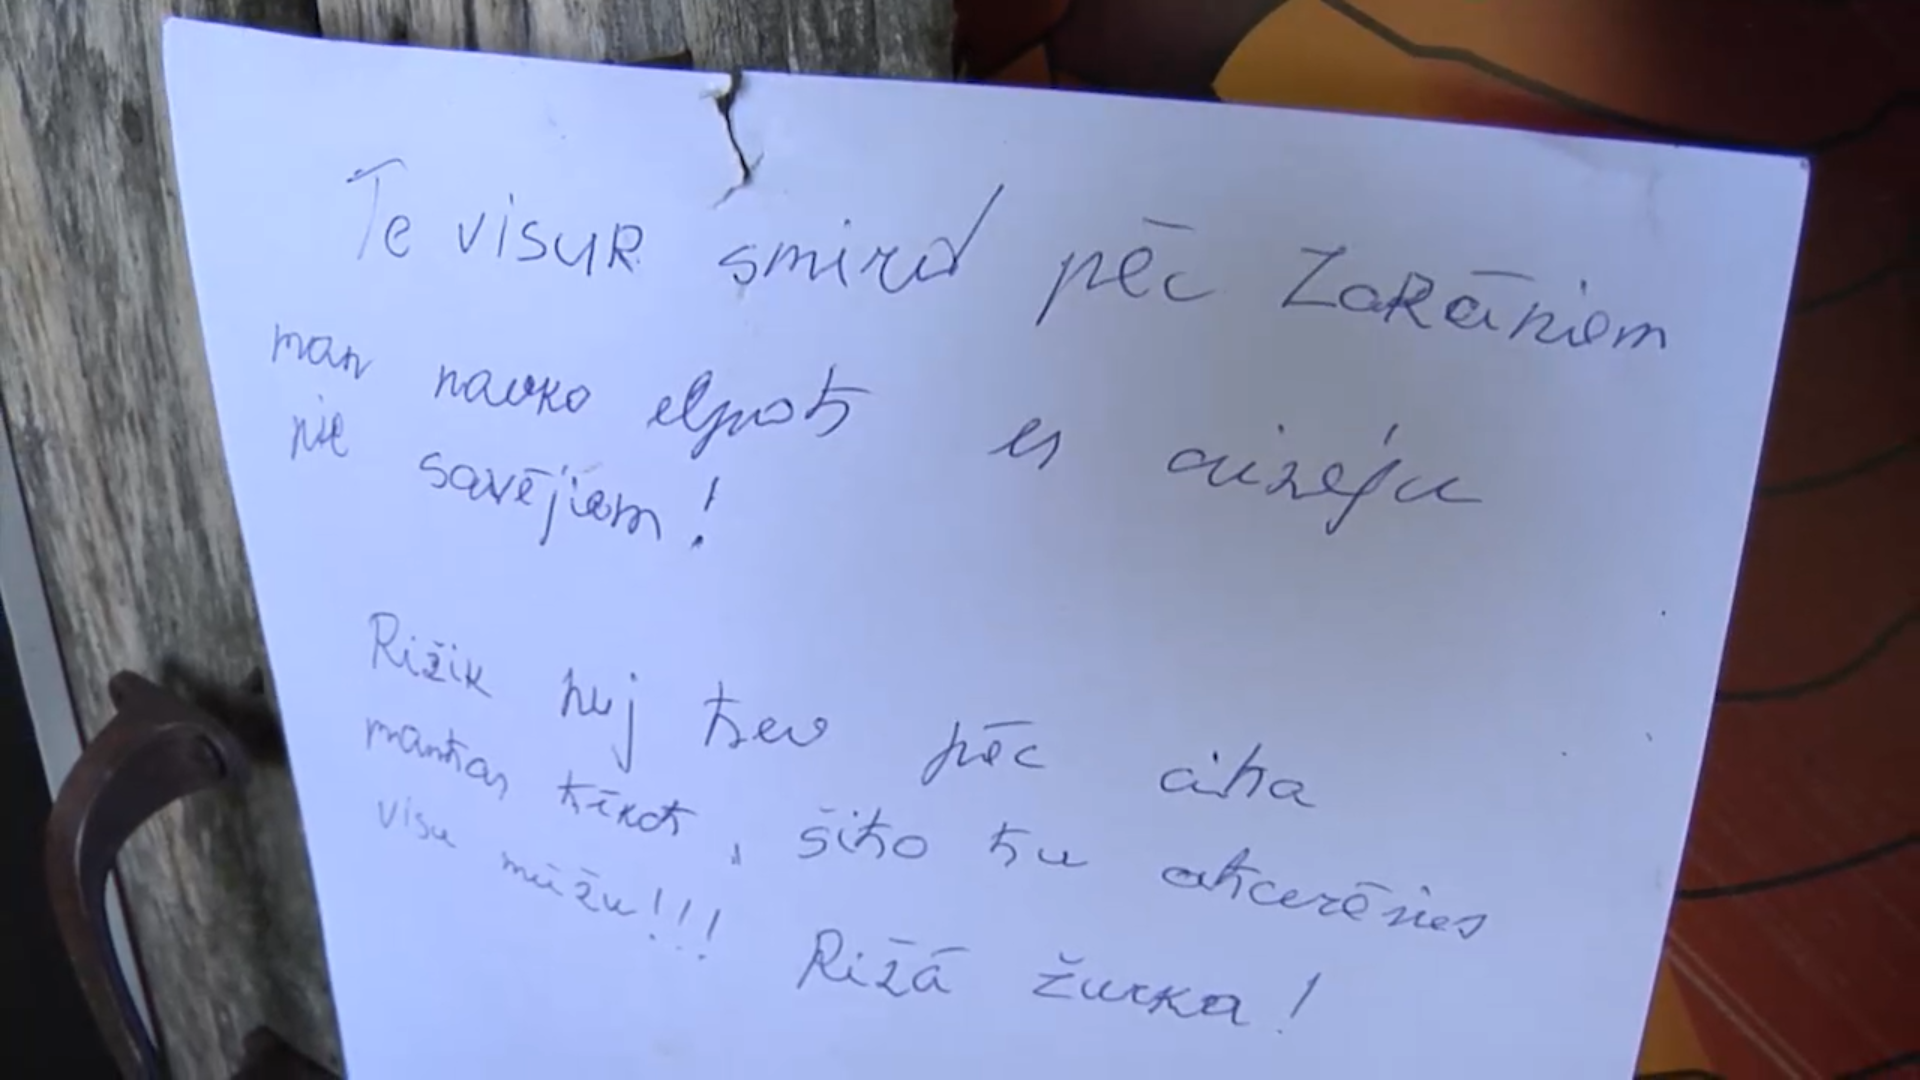 Te visur smird pēc Zarāniem
man navko elpot es aizeju
pie savējiem!
Rižik huj tev pēc cita
mantas tīkot, šito tu atcerēsies
visu mūžu!!! Rižā žurka!